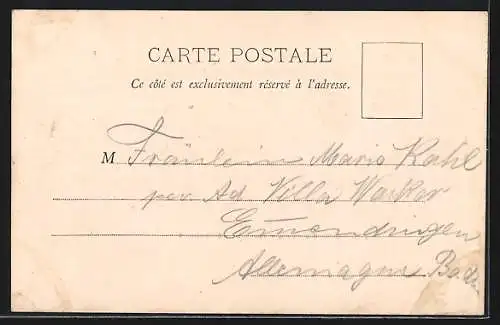 CARTE POSTALE
Ce côté est exclusivement réservé à l'adresse.
M Fräulein Marie Kahl
per Ad Villa Wacker
Emmendingen
Allemagne Baden